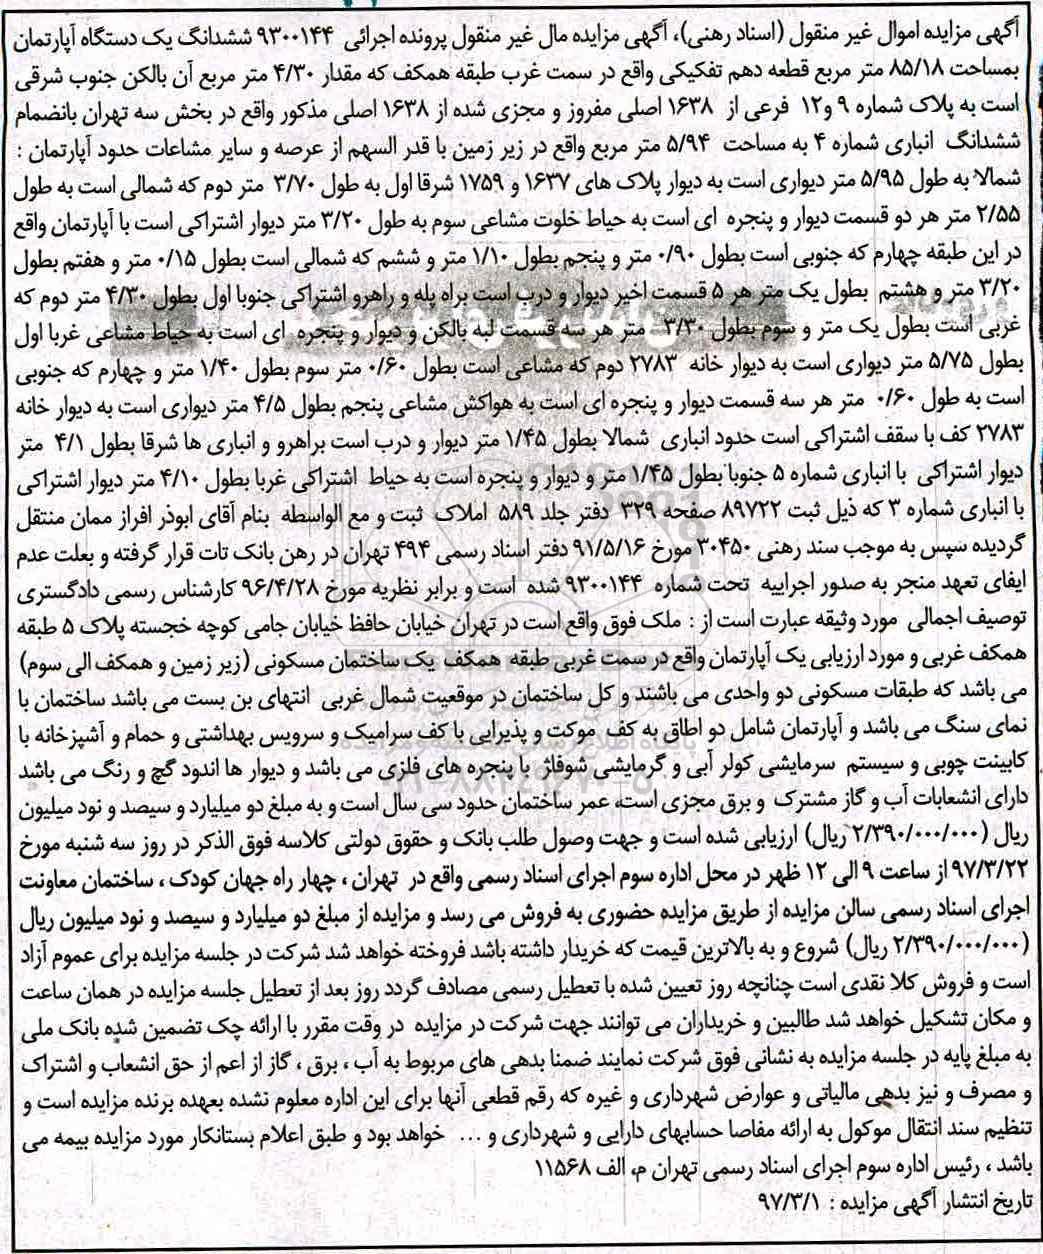 آگهی مزایده اموال غیر منقول (اسناد رهنی)، آگهی مزایده مال غیر منقول پرونده اجرائی ۹۳۰۰۱۴۴ ششدانگ یک دستگاه آپارتمان
بمساحت ۸۵/۱۸ متر مربع قطعه دهم تفکیکی واقع در سمت غرب طبقه همکف که مقدار ۴/۳۰ متر مربع آن بالکن جنوب شرقی
است به پلاک شماره ۹ و۱۲ فرعی از ۱۶۳۸ اصلی مفروز و مجزی شده از ۱۶۳۸ اصلی مذکور واقع در بخش سه تهران بانضمام
ششدانگ انباری شماره ۴ به مساحت ۵/۹۴ متر مربع واقع در زیر زمین با قدر السهم از عرصه و سایر مشاعات حدود آپارتمان :
شمالا به طول ۵/۹۵ متر دیواری است به دیوار پلاک های ۱۶۳۷ و ۱۷۵۹ شرقا اول به طول ۳/۷۰ متر دوم که شمالی است به طول
۲/۵۵ متر هر دو قسمت دیوار و پنجره ای است به حیاط خلوت مشاعی سوم به طول ۳/۲۰ متر دیوار اشتراکی است با آپارتمان واقع
در این طبقه چهارم که جنوبی است بطول ۰/۹۰ متر و پنجم بطول ۱/۱۰ متر و ششم که شمالی است بطول ۰/۱۵ متر و هفتم بطول
۳/۲۰ متر و هشتم بطول یک متر هر ۵ قسمت اخیر دیوار و درب است براه پله و راهرو اشتراکی جنوبا اول بطول ۴/۳۰ متر دوم که
غربی است بطول یک متر و سوم بطول ۳/۳۰ متر هر سه قسمت لبه بالکن و دیوار و پنجره ای است به حیاط مشاعی غربا اول
بطول ۵/۷۵ متر دیواری است به دیوار خانه ۲۷۸۳ دوم که مشاعی است بطول ۰/۶۰ متر سوم بطول ۱/۴۰ متر و چهارم که جنوبی
است به طول ۰/۶۰ متر هر سه قسمت دیوار و پنجره ای است به هواکش مشاعی پنجم بطول ۴/۵ متر دیواری است به دیوار خانه
۲۷۸۳ کف با سقف اشتراکی است حدود انباری شمالا بطول ۱/۴۵ متر دیوار و درب است براهرو و انباری ها شرقا بطول ۴/۱ متر
دیوار اشتراکی با انباری شماره ۵ جنوبا بطول ۱/۴۵ متر و دیوار و پنجره است به حیاط اشتراکی غربا بطول ۴/۱۰ متر دیوار اشتراکی
با انباری شماره ۳ که ذیل ثبت ۸۹۷۲۲ صفحه ۳۲۹ دفتر جلد ۵۸۹ املاک ثبت و مع الواسطه بنام آقای ابوذر افراز ممان منتقل
گردیده سپس به موجب سند رهنی ۳۰۴۵۰ مورخ ۹۱/۵/۱۶ دفتر اسناد رسمی ۴۹۴ تهران در رهن بانک تات قرار گرفته و بعلت عدم
ایفای تعهد منجر به صدور اجراییه تحت شماره ۹۳۰۰۱۴۴ شده است و برابر نظریه مورخ ۹۶/۴/۲۸ کارشناس رسمی دادگستری
توصیف اجمالی مورد وثیقه عبارت است از : ملک فوق واقع است در تهران خیابان حافظ خیابان جامی کوچه خجسته پلاک ۵ طبقه
همکف غربی و مورد ارزیابی یک آپارتمان واقع در سمت غربی طبقه همکف یک ساختمان مسکونی (زیر زمین و همکف الی سوم)
می باشد که طبقات مسکونی دو واحدی می باشند و کل ساختمان در موقعیت شمال غربی انتهای بن بست می باشد ساختمان با
نمای سنگ می باشد و آپارتمان شامل دو اطاق به کف موکت و پذیرایی با کف سرامیک و سرویس بهداشتی و حمام و آشپزخانه با
کابینت چوبی و سیستم سرمایشی کولر آبی و گرمایشی شوفاژ با پنجره های فلزی می باشد و دیوار ها اندود گچ و رنگ می باشد
دارای انشعابات آب و گاز مشترک و برق مجزی است، عمر ساختمان حدود سی سال است و به مبلغ دو میلیارد و سیصد و نود میلیون
ریال (۲/۳۹۰/۰۰۰/۰۰۰ ریال) ارزیابی شده است و جهت وصول طلب بانک و حقوق دولتی کلاسه فوق الذکر در روز سه شنبه مورخ
۹۷/۳/۲۲ از ساعت ۹ الی ۱۲ ظهر در محل اداره سوم اجرای اسناد رسمی واقع در تهران ، چهار راه جهان کودک ، ساختمان معاونت
اجرای اسناد رسمی سالن مزایده از طریق مزایده حضوری به فروش می رسد و مزایده از مبلغ دو میلیارد و سیصد و نود میلیون ریال
(۲/۳۹۰/۰۰۰/۰۰۰ ریال) شروع و به بالاترین قیمت که خریدار داشته باشد فروخته خواهد شد شرکت در جلسه مزایده برای عموم آزاد
است و فروش کلا نقدی است چنانچه روز تعیین شده با تعطیل رسمی مصادف گردد روز بعد از تعطیل جلسه مزایده در همان ساعت
و مکان تشکیل خواهد شد طالبین و خریداران می توانند جهت شرکت در مزایده در وقت مقرر با ارائه چک تضمین شده بانک ملی
به مبلغ پایه در جلسه مزایده به نشانی فوق شرکت نمایند ضمنا بدهی های مربوط به آب ، برق ، گاز از اعم از حق انشعاب و اشتراک
و مصرف و نیز بدهی مالیاتی و عوارض شهرداری و غیره که رقم قطعی آنها برای این اداره معلوم نشده بعهده برنده مزایده است و
تنظیم سند انتقال موکول به ارائه مفاصا حسابهای دارایی و شهرداری و ... خواهد بود و طبق اعلام بستانکار مورد مزایده بیمه می
باشد ، رئیس اداره سوم اجرای اسناد رسمی تهران م، الف ۱۱۵۶۸
تاریخ انتشار آگهی مزایده : ۹۷/۳/۱